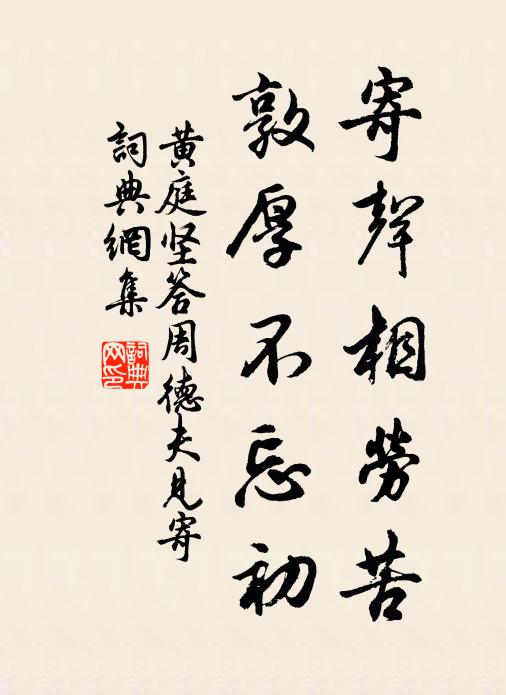 寄聲相勞苦
敦厚不忘初
黄庭坚答周德夫見寄
詞典網集
詞典网印